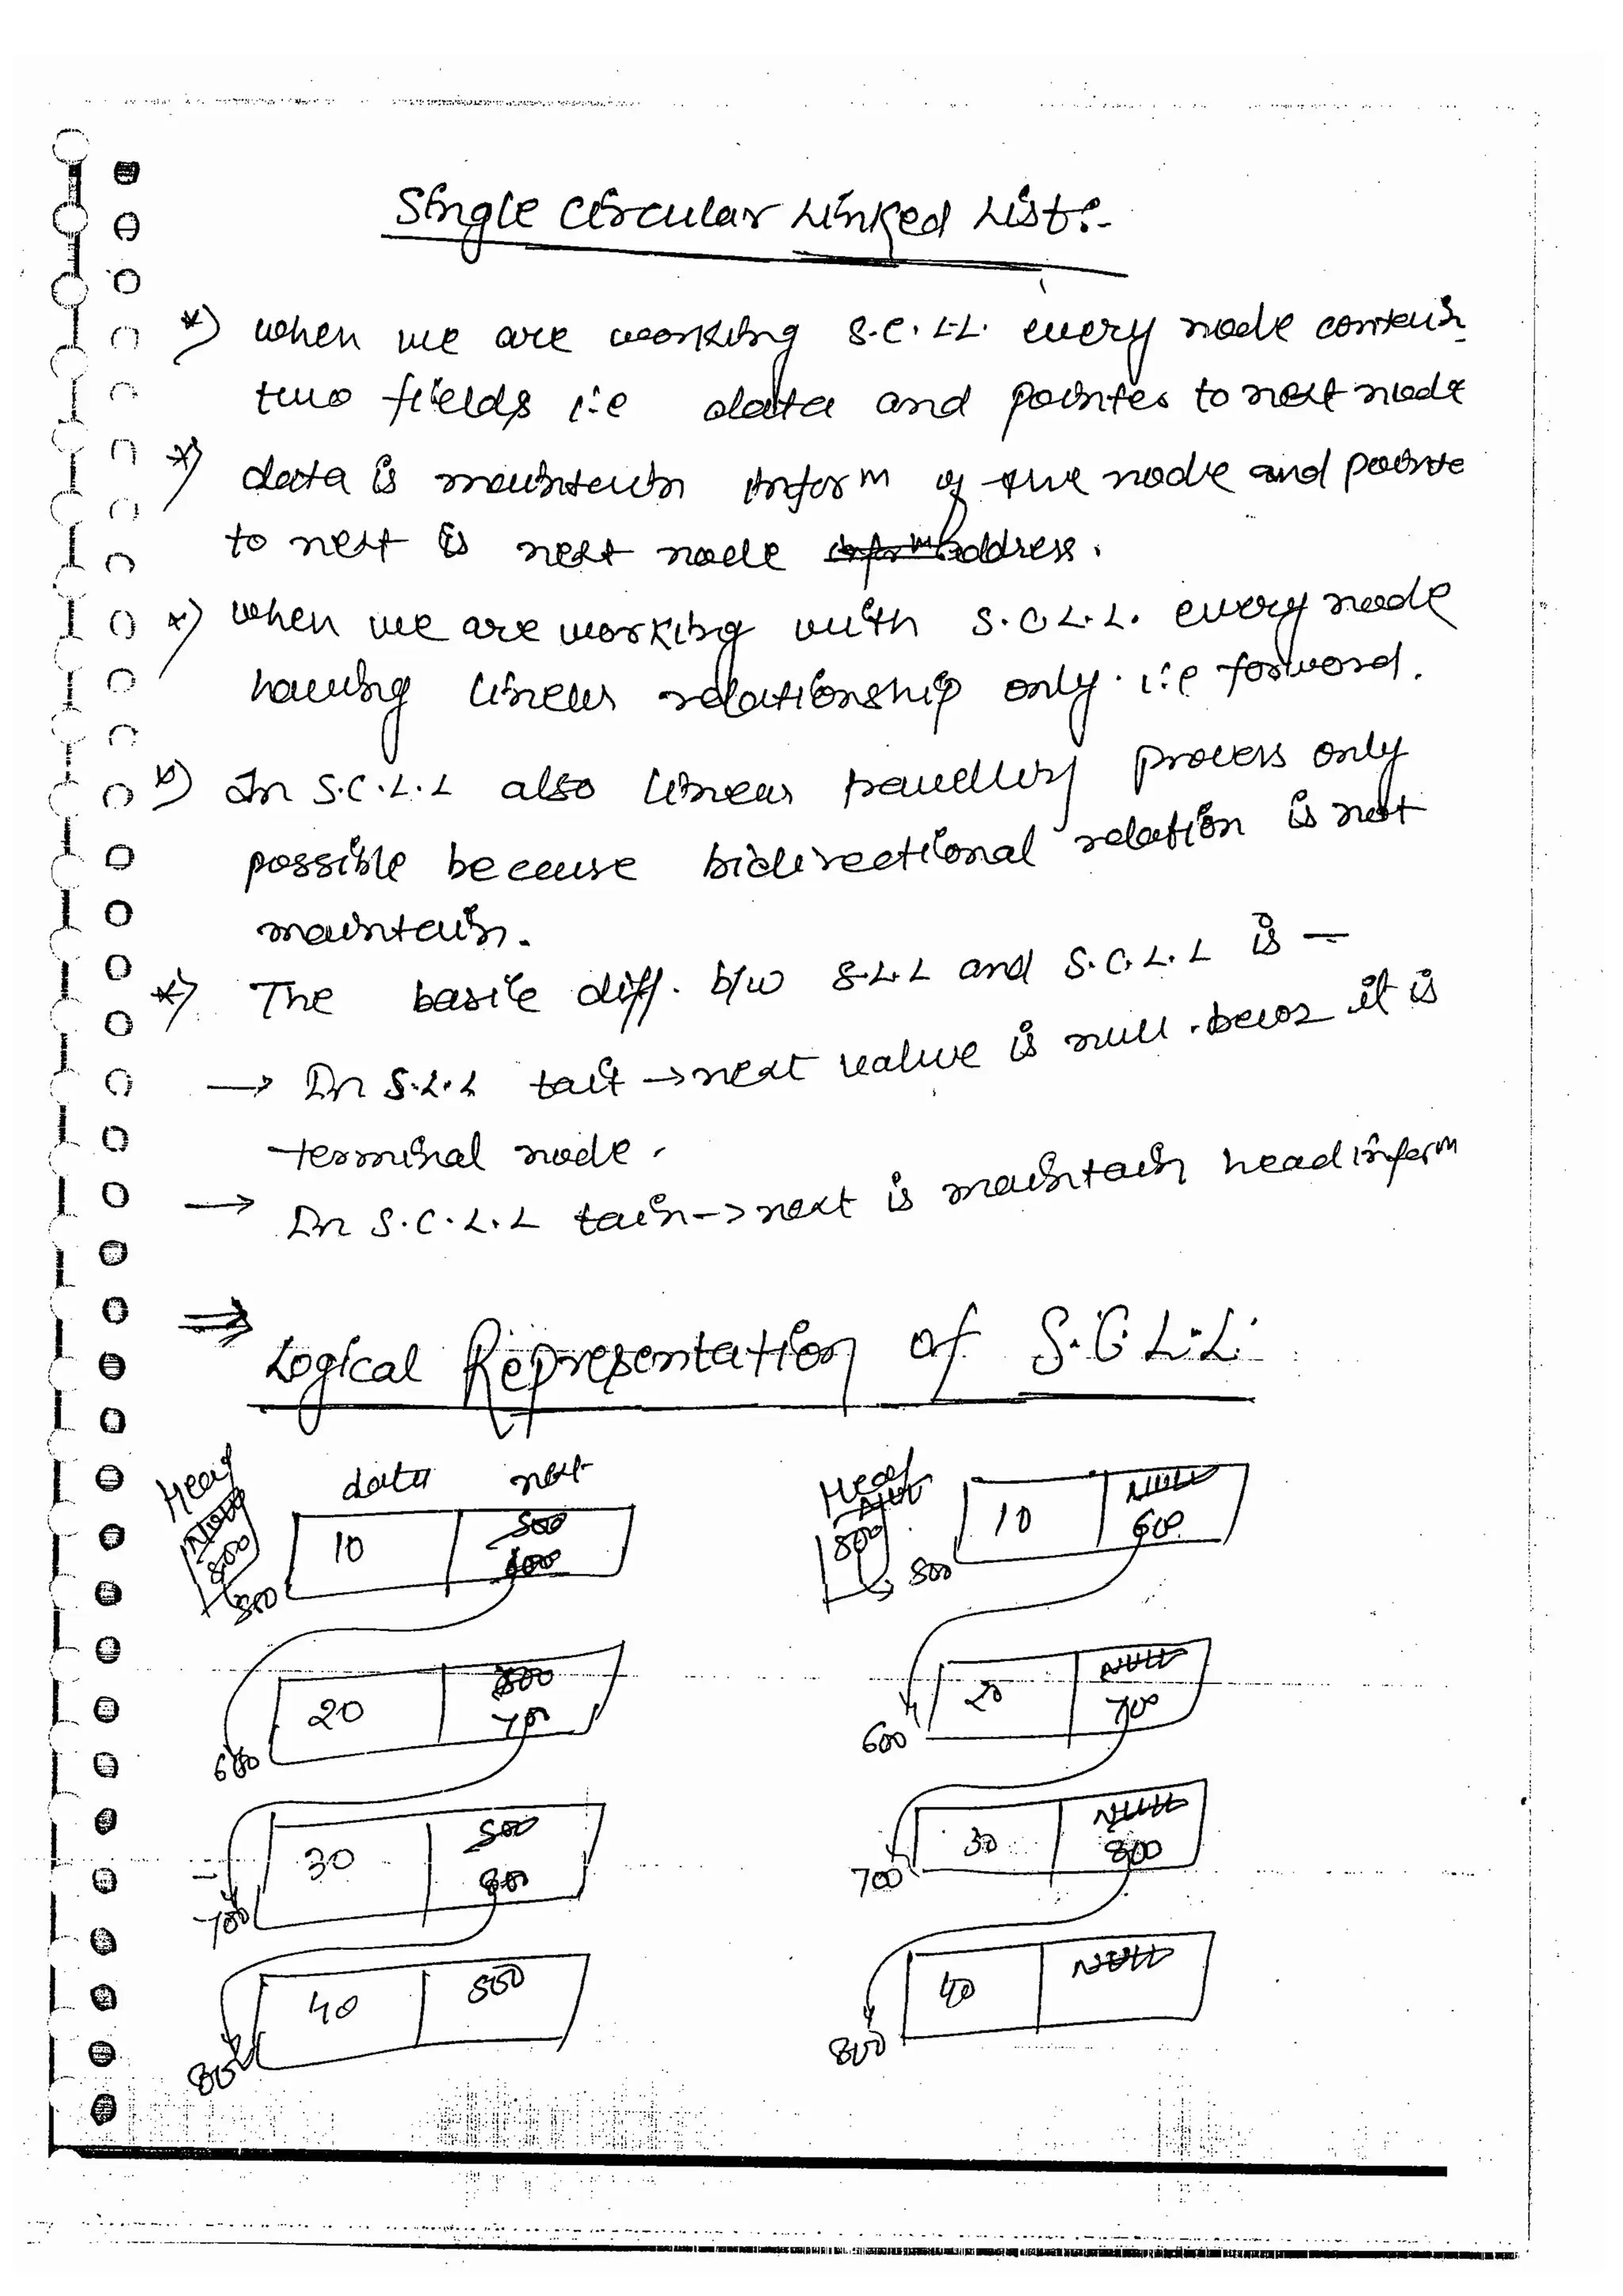 Single Circular Linked List:-
*) when we are working S.C.L.L. every node contain
two fields i.e data and pointer to next node
*) data is maintain inform of the node and pointe
to next is next node address.
*) when we are working with S.C.L.L. every node
having linear relationship only i.e forword.
*) In S.C.L.L also linear travelling process only
possible because bidirectional relation is not
maintain.
*) The basic diff. b/w S.L.L and S.C.L.L is —
→ In S.L.L tail → next value is null. becoz it is
terminal node.
→ In S.C.L.L tain -> next is maintain head inform
⇒ Logical Representation of S.C.L.L.
Head data next
NULL
500
500
10 500
600
600
20 500
700
700
30 500
800
800
40 500
Head
NULL
500
500
10 NULL
600
600
20 NULL
700
700
30 NULL
800
800
40 NULL